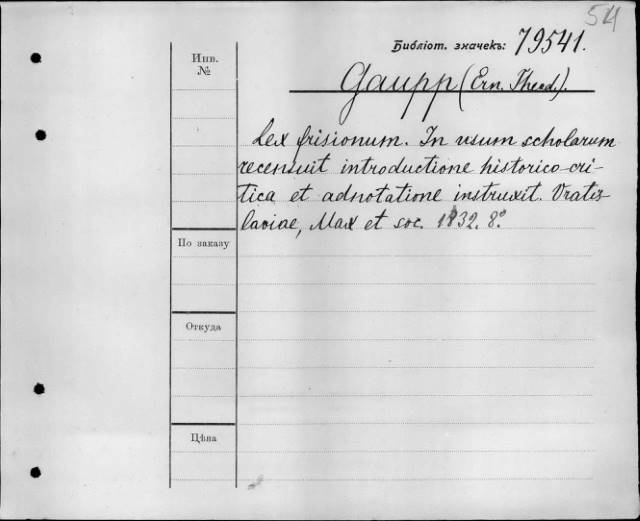 54
Библіот. значекъ: 79541.
Инв. №
Gaupp (Ern. Theod.).
Lex frisionum. In usum scholarum
recensuit introductione historico-cri-
tica et adnotatione instruxit. Vratis-
laviae, Max et soc. 1832. 8º.
По заказу
Откуда
Цѣна